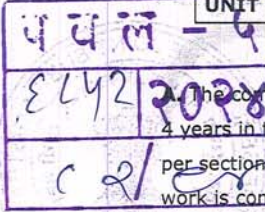 UNIT
प व ल - ५
६८५२ २०२४
A. The
4 years in
per section
work is